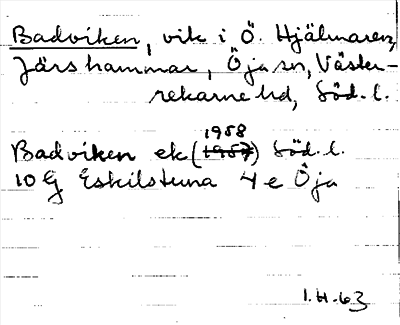 Badviken, vik i Ö. Hjälmaren,
Järshammar, Öja sn, Väster-
rekarne hd, Söd. l.
1958
Badviken ek (1957) Söd. l.
10 G Eskilstuna 4 e Öja
1.H.63